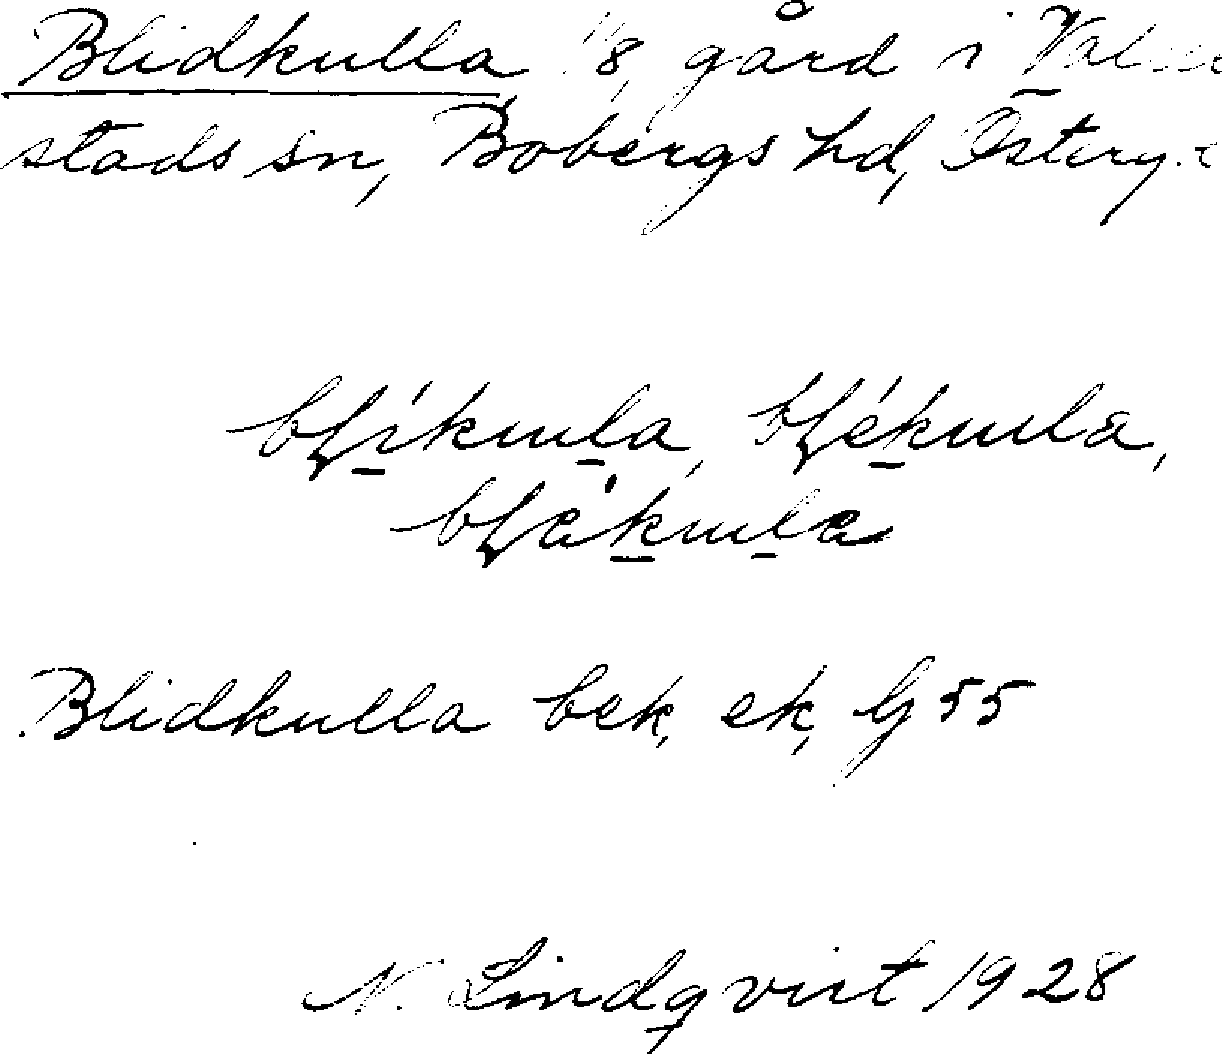 Blidkulla 1/8, gård i
stads sn, Bobergs hd,
blíkula, blékula,
blákula
Blidkulla bek, ek, G 55
N. Lindqvist 1928